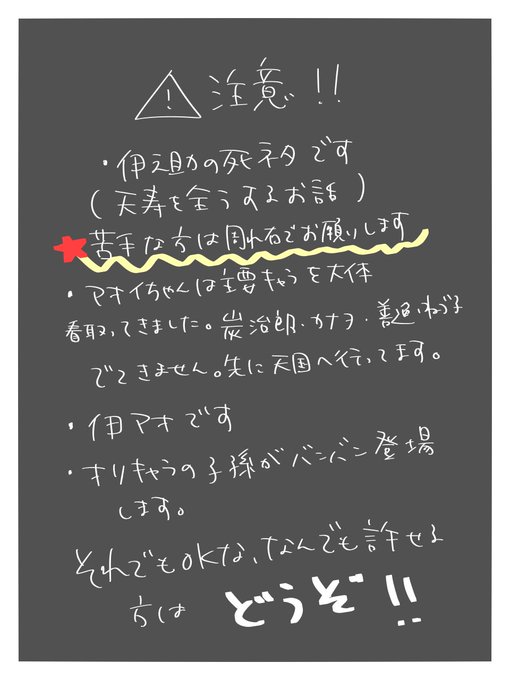 ⚠ 注意!!
・伊之助の死ネタです
(天寿を全うするお話)
★苦手な方は回れ右でお願いします
・アオイちゃんは主要キャラを大体
看取ってきました。炭治郎・カナヲ・善逸・ねづ子
でてきません。先に天国へ行ってます。
・伊アオです
・オリキャラの子孫がバンバン登場
します。
それでもOKな、なんでも許せる
方は どうぞ!!